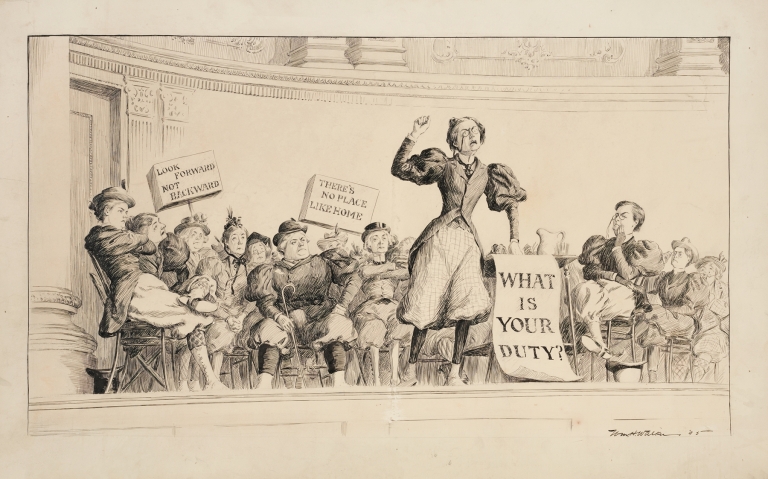 LOOK FORWARD
NOT
BACKWARD
THERE'S
NO PLACE
LIKE HOME
WHAT
IS
YOUR
DUTY?